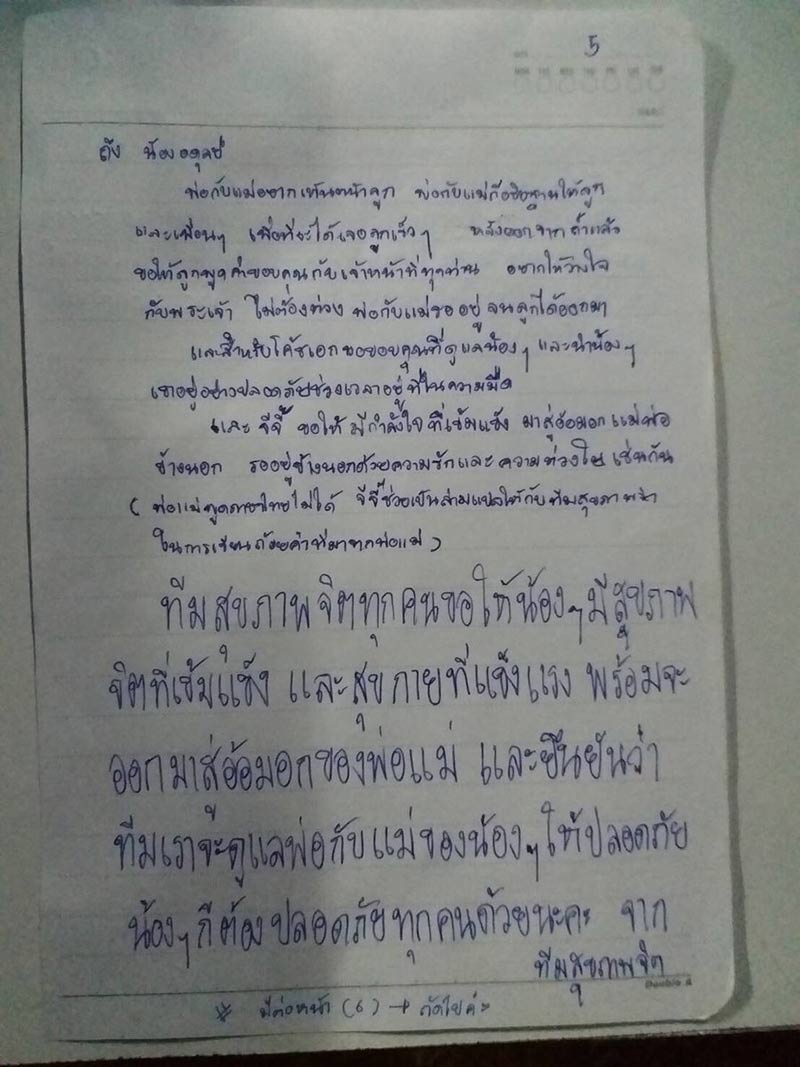 5
ถึง น้องอดุลย์
พ่อกับแม่อยากเห็นหน้าลูก พ่อกับแม่อธิษฐานให้ลูก
และเพื่อนๆ เพื่อที่จะได้เจอลูกเร็วๆ หลังออกจากถ้ำแล้ว
ขอให้ลูกพูดคำขอบคุณกับเจ้าหน้าที่ทุกท่าน อยากให้วางใจ
กับพระเจ้า ไม่ต้องห่วง พ่อกับแม่รออยู่จนลูกได้ออกมา
และสำหรับโค้ชเอก ขอขอบคุณที่ดูแลน้องๆ และนำน้องๆ
เขาอยู่อย่างปลอดภัยช่วงเวลาอยู่ที่ในความมืด
และ จีจี้ ขอให้ มีกำลังใจ ที่เข้มแข็ง มาสู่อ้อมอก แม่พ่อ
ข้างนอก รออยู่ข้างนอกด้วยความรักและความห่วงใย เช่นกัน
( พ่อแม่พูดภาษาไทยไม่ได้ จีจี้ช่วยเป็นล่ามแปลให้กับทีมสุขภาพจิต
ในการเขียนถ้อยคำที่มาจากพ่อแม่ )
ทีมสุขภาพจิตทุกคนขอให้น้องๆมีสุขภาพ
จิตที่เข้มแข็ง และสุขกายที่แข็งแรง พร้อมจะ
ออกมาสู่อ้อมอกของพ่อแม่ และยืนยันว่า
ทีมเราจะดูแลพ่อกับแม่ของน้องๆให้ปลอดภัย
น้องๆก็ต้องปลอดภัยทุกคนด้วยนะคะ จาก
ทีมสุขภาพจิต
Double A
* มีต่อหน้า (6) → ถัดไปค่ะ